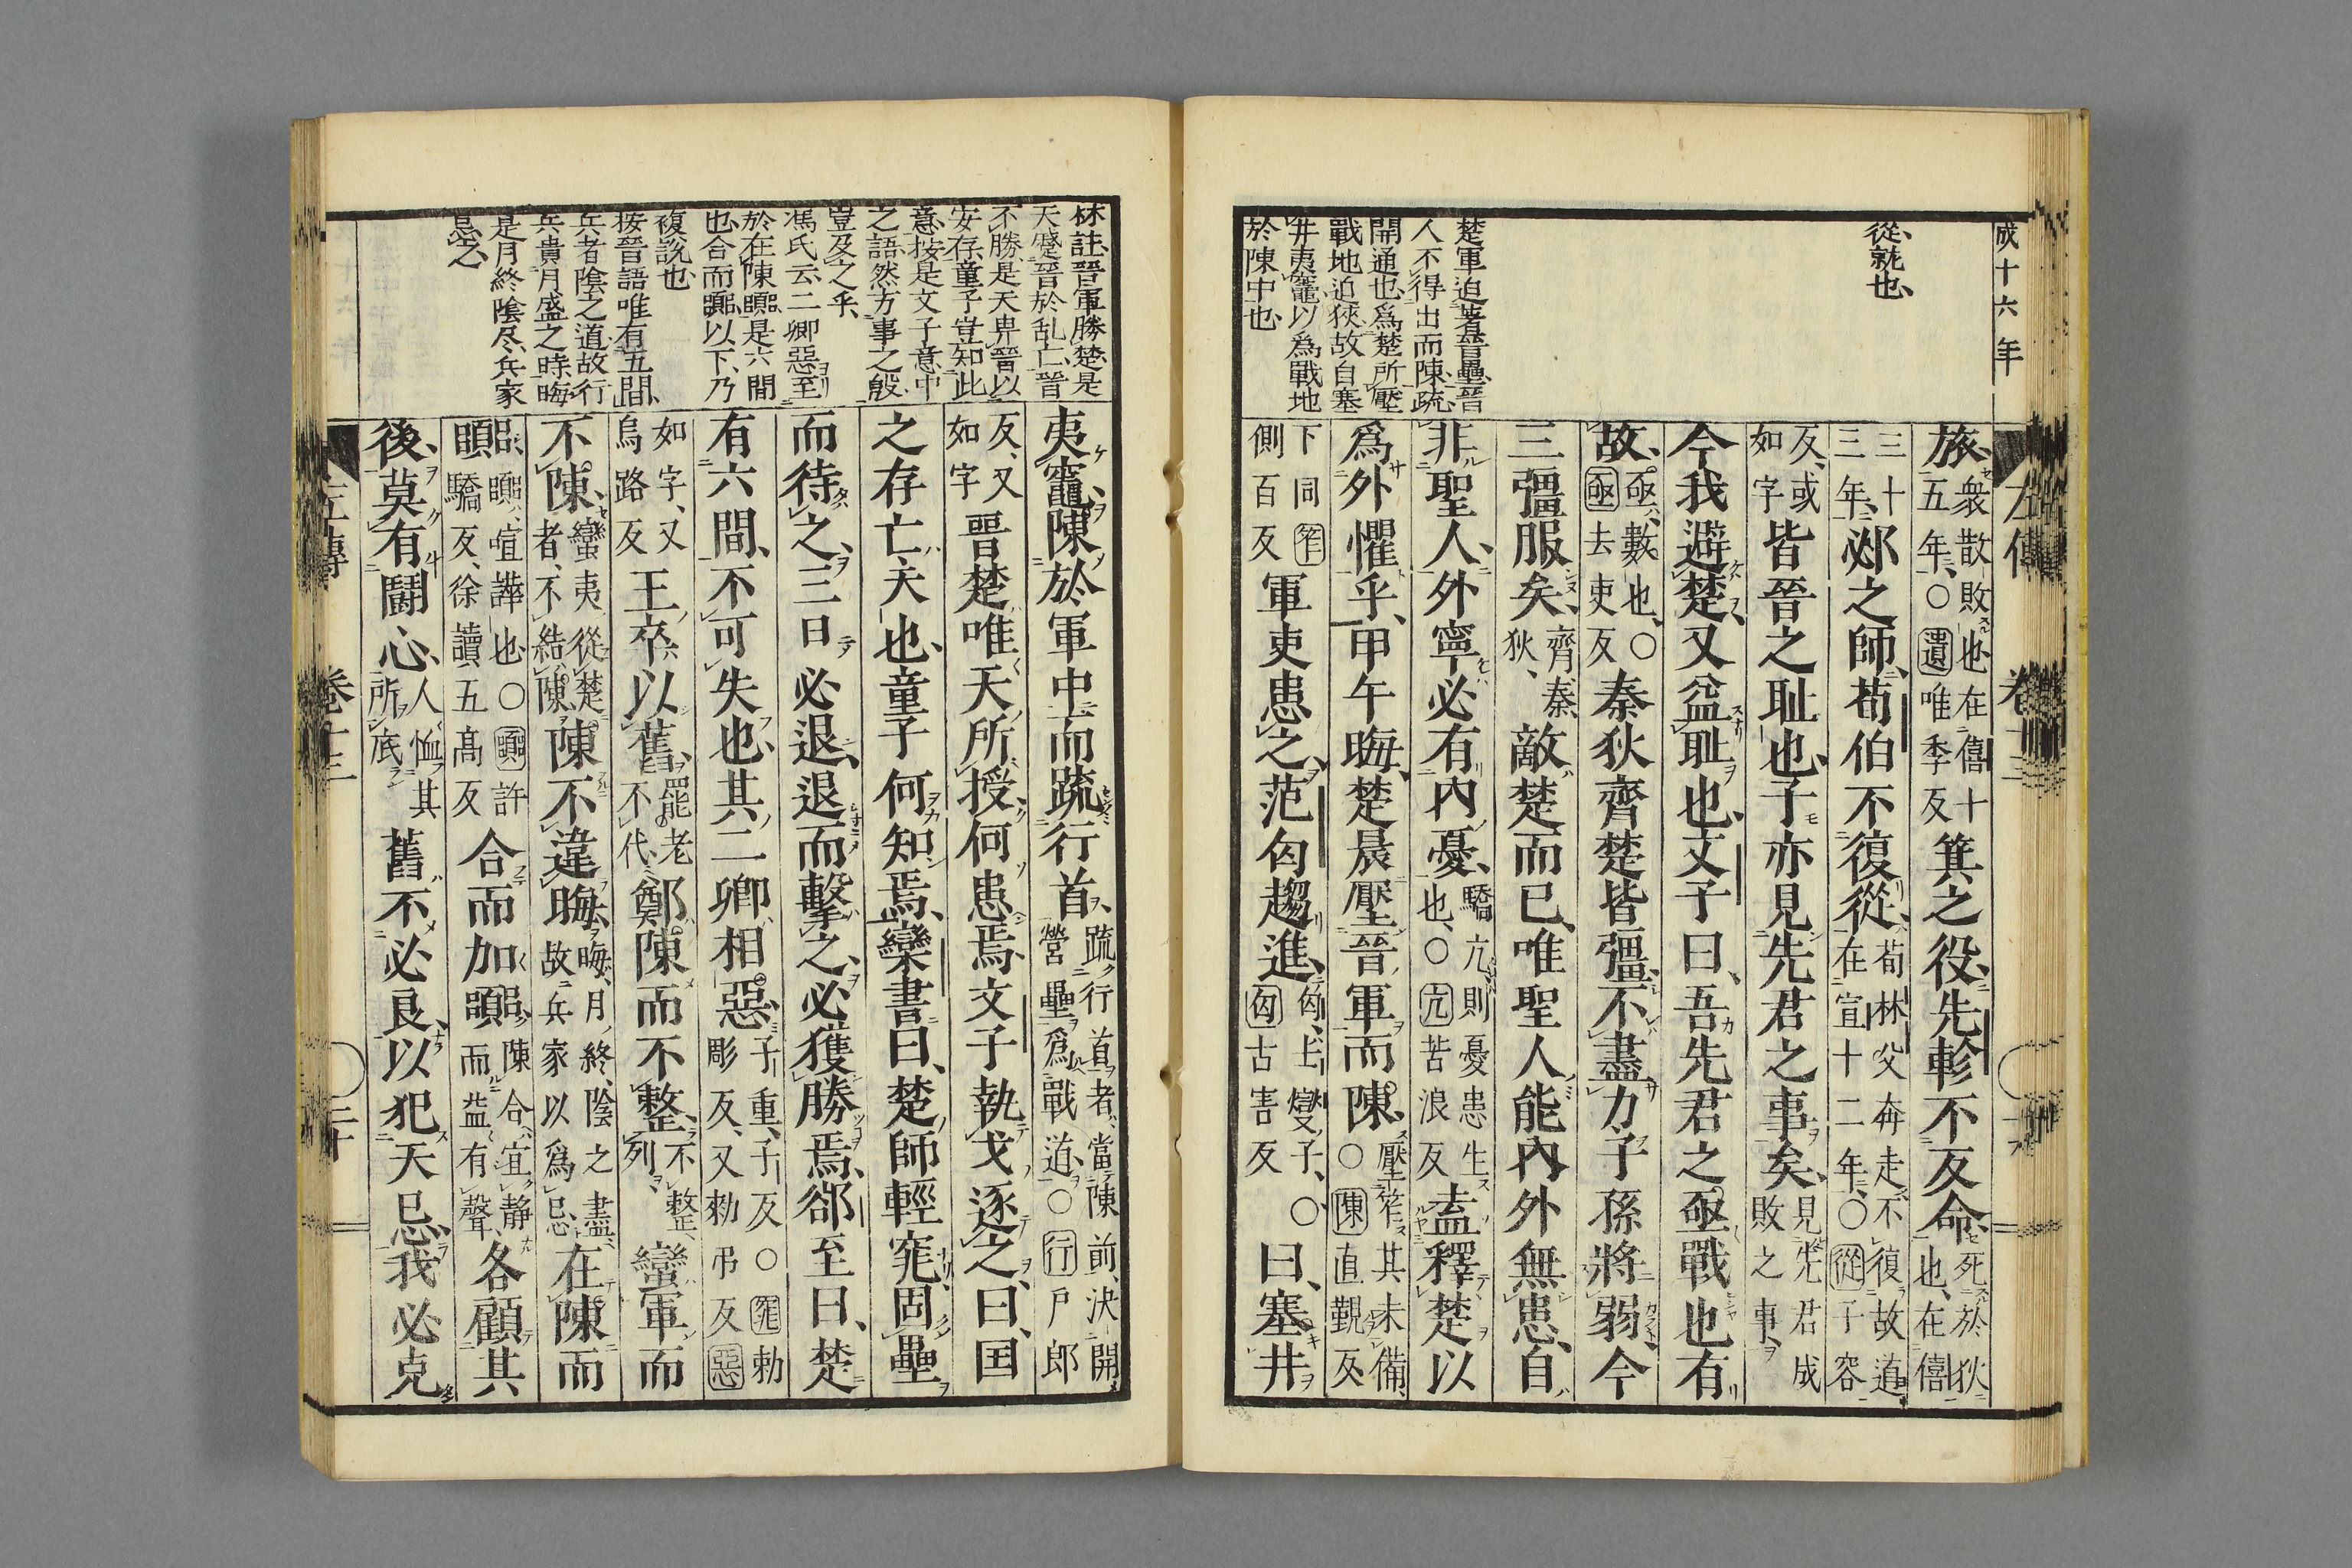 成十六年
從、就也、
楚軍迫著晉壘、晉
人不得出而陳、疏
開通也、爲楚所壓
戰地迫狹、故自塞
井夷竈、以爲戰地
於陳中也、
左傳 卷十三
旅、衆散敗也、在僖十五年、〇遺唯季反箕之役、先軫不反命、死於狄也、在僖
三十三年、邲之師、荀伯不復從、荀林父奔走、不復故道、在宣十二年、〇從子容
反、或如字皆晉之耻也、子亦見先君之事矣、見先君成敗之事、
今我避楚、又益耻也、文子曰、吾先君之亟戰也有
故、亟、數也、〇亟去吏反秦狄齊楚皆彊、不盡力、子孫將弱、今
三彊服矣、齊、秦、狄、敵楚而已、唯聖人能內外無患、自
非聖人、外寧必有內憂、驕亢則憂患生也、〇亢苦浪反盍釋楚以
爲外懼乎、甲午晦、楚晨壓晉軍而陳、壓笮其未備、〇陳直覲反
下同笮側百反軍吏患之、范匄趨進、匄、士燮子、〇匄古害反曰、塞井
林註、晉軍勝楚、是
天蹙晉於乱亡、晉
不勝、是天畀晉以
安存、童子豈知此
意、按是文子意中
之語、然方事之殷、
豈及之乎、
馮氏云、二卿惡至
於在陳嚻、是六間
也、合而嚻以下、乃
複說也、
按晉語唯有五間、
兵者陰之道、故行
兵貴月盛之時、晦
是月終陰尽、兵家
忌之、
夷竈、陳於軍中、而疏行首、疏行首者、當陳前決開營壘爲戰道、〇行戶郎
反、又如字晉楚唯天所授、何患焉、文子執戈逐之、曰、国
之存亡、天也、童子何知焉、欒書曰、楚師輕窕、固壘
而待之、三日必退、退而擊之、必獲勝焉、郤至曰、楚
有六間、不可失也、其二卿相惡、子重、子反〇窕勅彫反、又勅弔反惡
如字、又烏路反王卒以舊、罷老不代、鄭陳而不整、不整列、蠻軍而
不陳、蠻夷從楚者、不結陳、陳不違晦、晦、月終、陰之盡、故兵家以爲忌、在陳而
嚻、嚻、喧譁也、〇嚻許驕反、徐讀五高反合而加嚻、陳合宜靜、而益有聲、各顧其
後、莫有鬭心、人恤其所底、舊不必良、以犯天忌、我必克
左傳 卷十三 二十